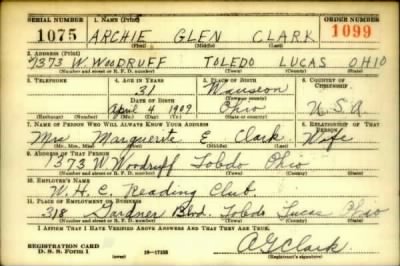 SERIAL NUMBER 1. NAME (Print) ORDER NUMBER
1075 ARCHIE GLEN CLARK 1099
(First) (Middle) (Last)
2. ADDRESS (Print)
1373 W. WOODRUFF TOLEDO LUCAS OHIO
(Number and street or R. F. D. number) (Town) (County) (State)
3. TELEPHONE 4. AGE IN YEARS 5. PLACE OF BIRTH 6. COUNTRY OF CITIZENSHIP
31 Wauseon
DATE OF BIRTH (Town or county)
April 4 1909 Ohio U.S.A
(Mo.) (Day) (Yr.) (State or country)
7. NAME OF PERSON WHO WILL ALWAYS KNOW YOUR ADDRESS 8. RELATIONSHIP OF THAT PERSON
Mrs Marguerite E Clark Wife
(Mr., Mrs., Miss) (First) (Middle) (Last)
9. ADDRESS OF THAT PERSON
1373 W Woodruff Toledo Ohio
(Number and street or R. F. D. number) (Town) (County) (State)
10. EMPLOYER'S NAME
W. H. C. Reading Club
11. PLACE OF EMPLOYMENT OR BUSINESS
318 Gardner Bld. Toledo Lucas Ohio
(Number and street or R. F. D. number) (Town) (County) (State)
I AFFIRM THAT I HAVE VERIFIED ABOVE ANSWERS AND THAT THEY ARE TRUE.
REGISTRATION CARD
D. S. S. Form 1 16—17105 A G Clark
(Registrant's signature)